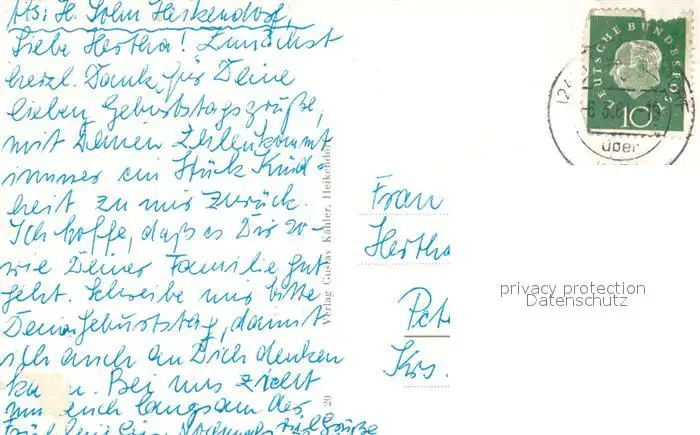 Abs: H. Sohn Heikendorf,
Liebe Hertha! Zunächst
herzl. Dank für Deine
lieben Geburtstagsgrüße,
mit Deinen Zeilen kommt
immer ein Stück Kind-
heit zu mir zurück.
Ich hoffe, daß es Dir so-
wie Deiner Familie gut
geht. Schreibe mir bitte
Deinen Geburtstag, damit
ich auch an Dich denken
ka n. Bei uns zieht
nun auch langsam der
Frühling ein. Nochmals viel Grüße
Verlag Gustav Kähler, Heikendorf
20
DEUTSCHE BUNDESPOST
10
über
Frau
Hertha
Pete
Krs.
privacy protection
Datenschutz